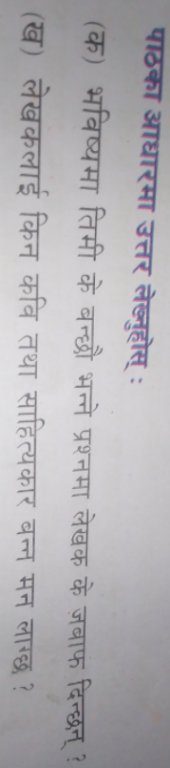 पाठका आधारमा उत्तर लेख्नुहोस् :
(क) भविष्यमा तिमी के बन्छौ भन्ने प्रश्नमा लेखक के जवाफ दिन्छन् ?
(ख) लेखकलाई किन कवि तथा साहित्यकार बन्न मन लाग्छ ?